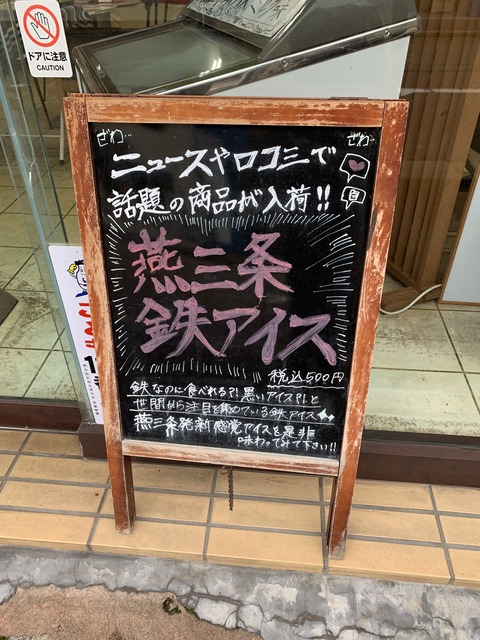 ドアに注意
CAUTION
ざわ… ざわ…
ニュースや口コミで
話題の商品が入荷!!
燕三条
鉄アイス
税込500円
鉄なのに食べれる?!黒いアイス?!と
世間から注目を集めている鉄アイス
燕三条発新感覚アイスを是非
味わってみて下さい!!